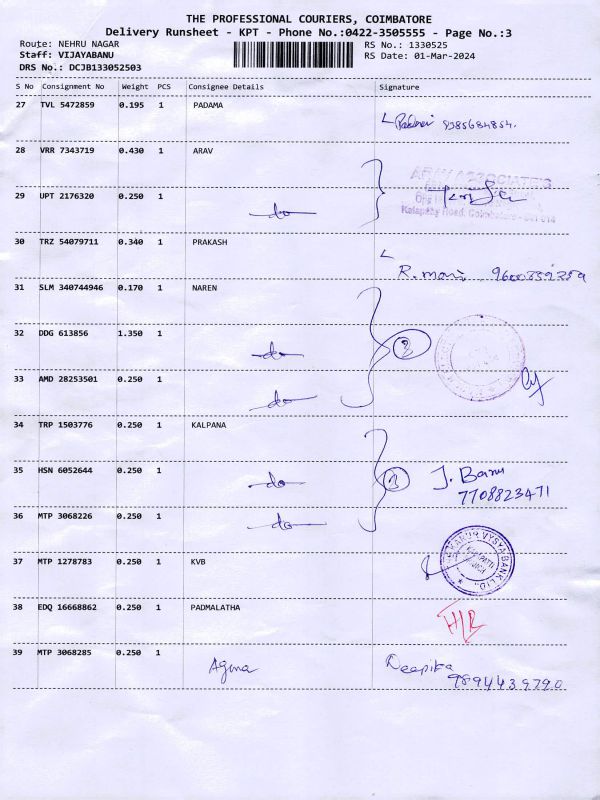 THE PROFESSIONAL COURIERS, COIMBATORE
Delivery Runsheet - KPT - Phone No.:0422-3505555 - Page No.:3
Route: NEHRU NAGAR RS No.: 1330525
Staff: VIJAYABANU RS Date: 01-Mar-2024
DRS No.: DCJB133052503
S No Consignment No Weight PCS Consignee Details Signature
27 TVL 5472859 0.195 1 PADAMA
28 VRR 7343719 0.430 1 ARAV
ARAV ASSOCIATES
29 UPT 2176320 0.250 1 do
Kalapatty Road, Coimbatore
30 TRZ 54079711 0.340 1 PRAKASH
R. mani
31 SLM 340744946 0.170 1 NAREN
32 DDG 613856 1.350 1 do 3
33 AMD 28253501 0.250 1 do
34 TRP 1503776 0.250 1 KALPANA
35 HSN 6052644 0.250 1 do 3 J. Banu
7708823471
36 MTP 3068226 0.250 1 do
37 MTP 1278783 0.250 1 KVB
KARUR VYSYA BANK LTD.
38 EDQ 16668862 0.250 1 PADMALATHA
39 MTP 3068285 0.250 1 Deepika
9894439790